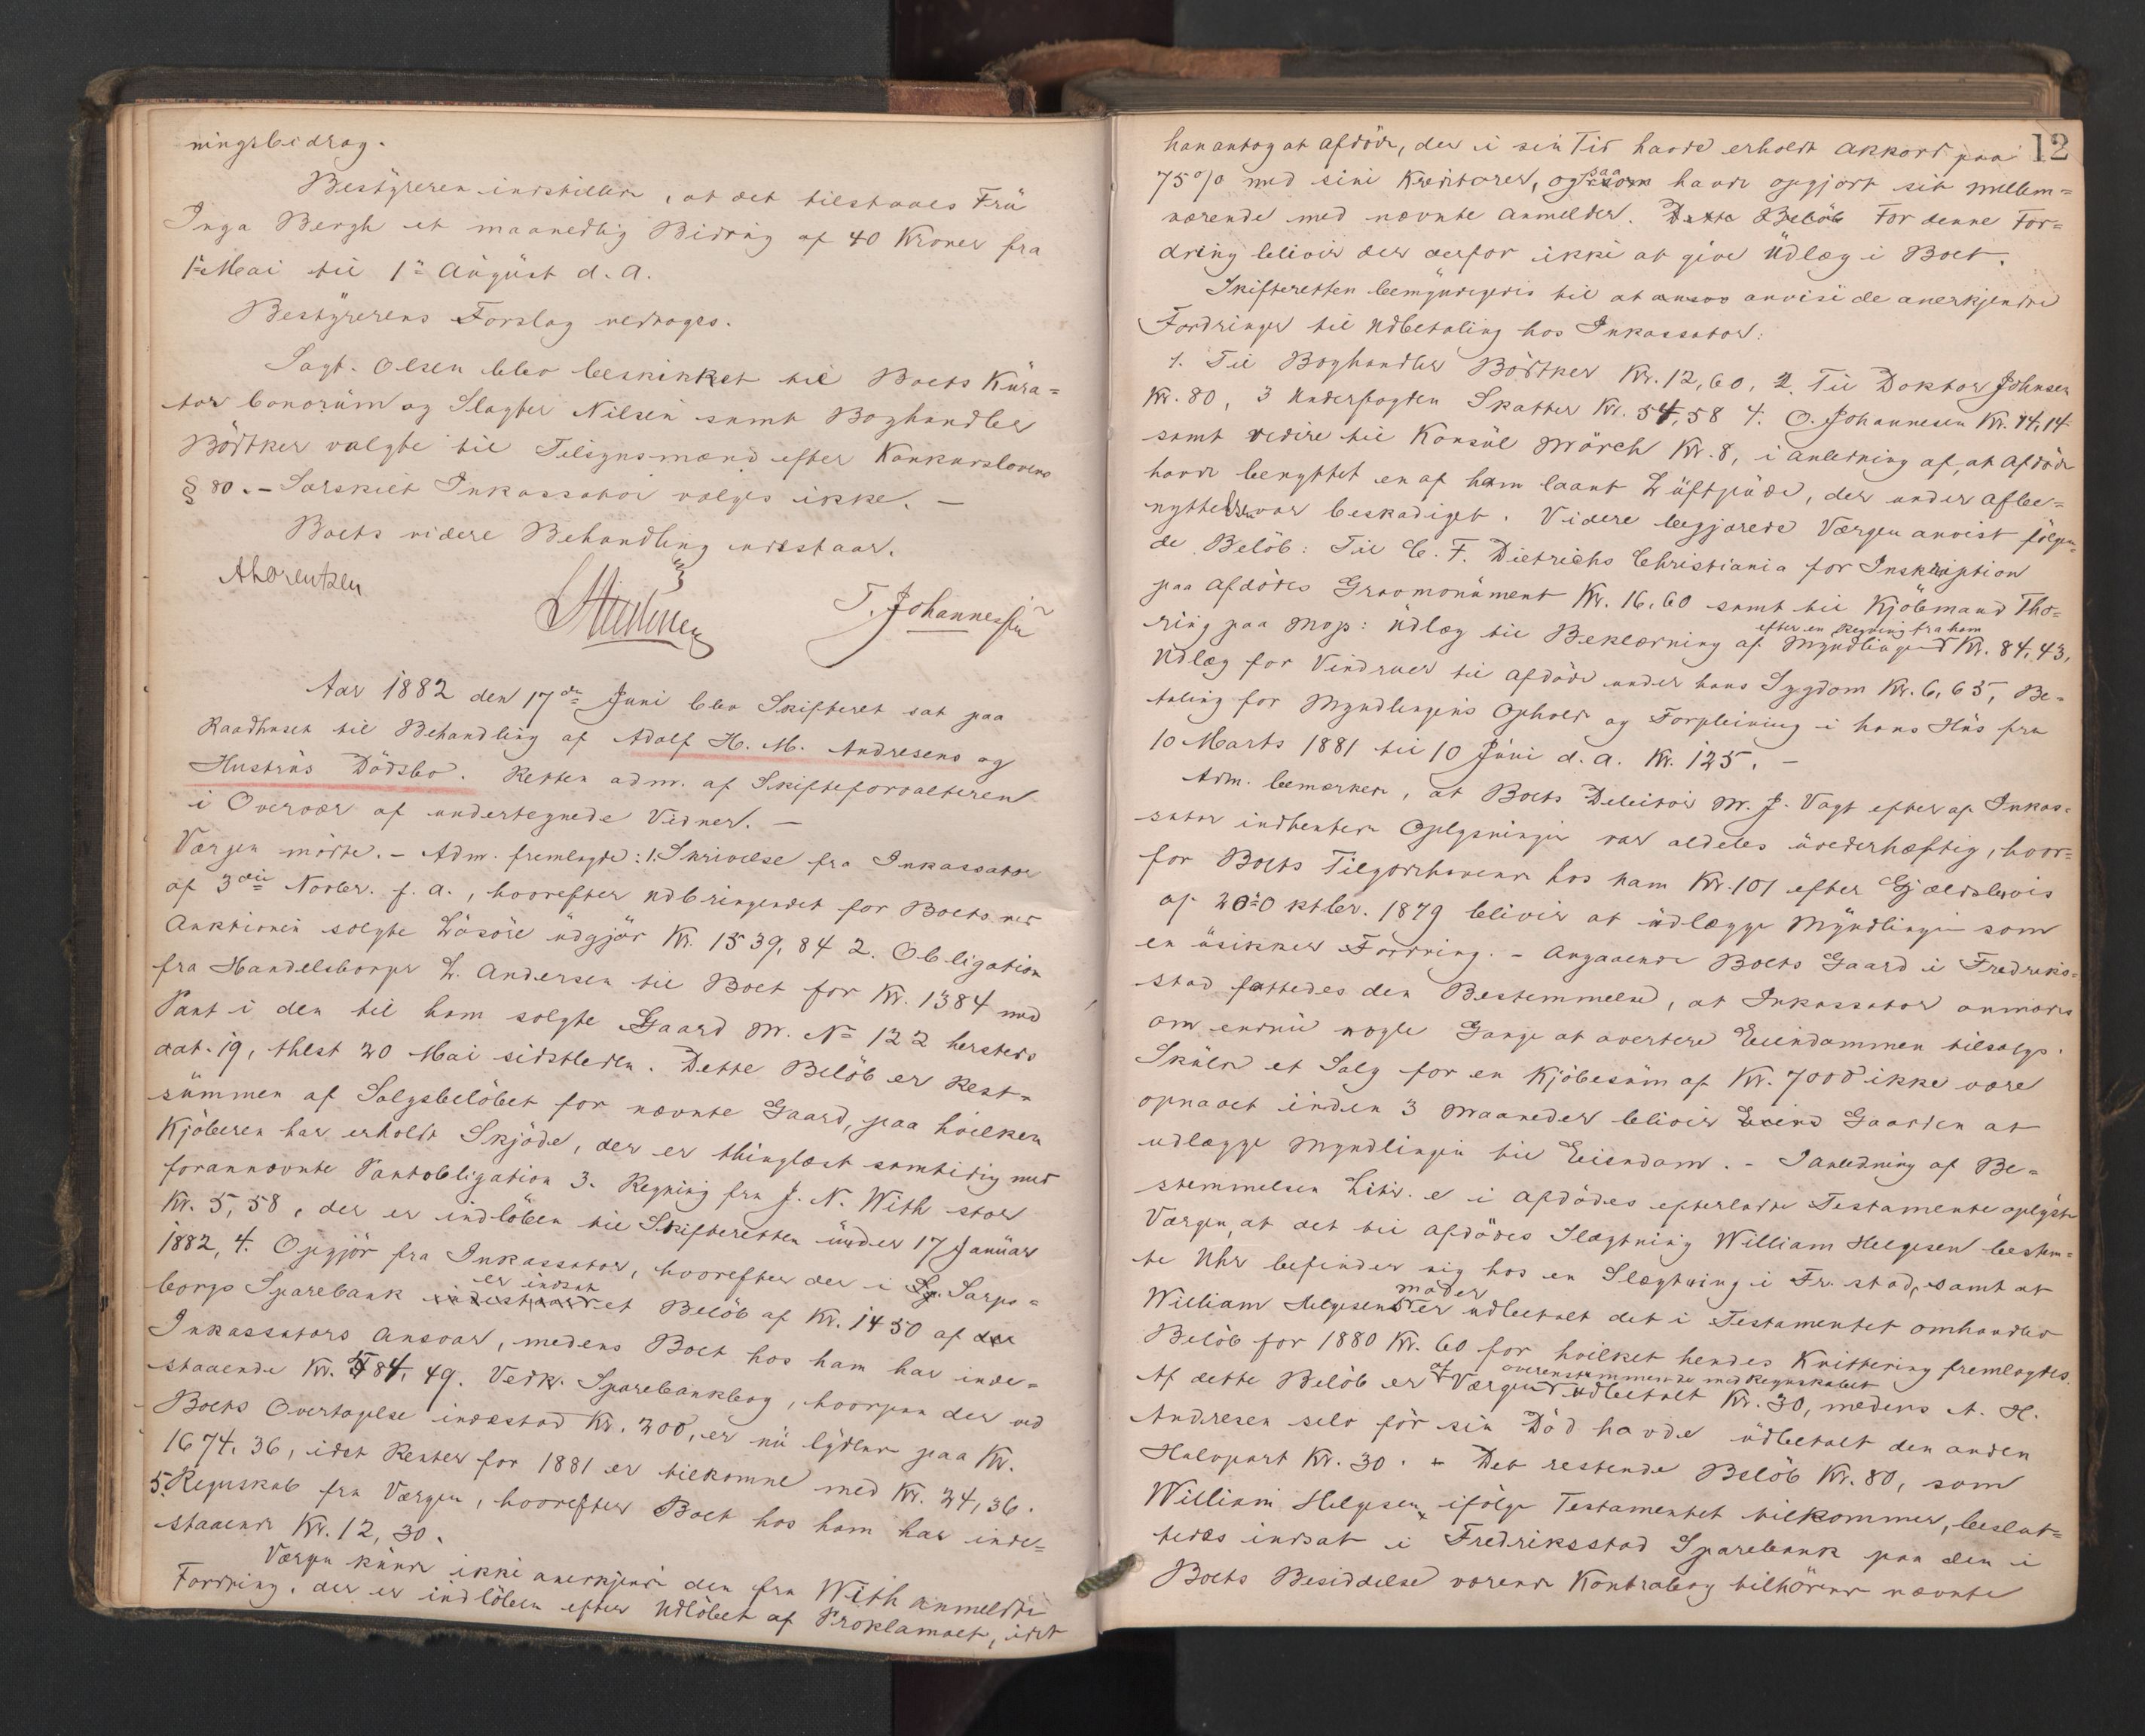 ningsbidrag.
Bestÿreren indstiller, at det tilstaaes Frü
Inga Bergh et maanedlig Bidrag af 40 Kroner fra
1ste Mai til 1ste Aügüst d. A.
Bestÿrerens Forslag vedtoges.
Sagf. Olsen blev beskikket til Boets Küra=
tor bonorüm og Slagter Nilsen samt Boghandler
Bödtker valgte til Tilsynsmænd efter Konkurslovens
§ 80. – Særskilt Inkassator valges ikke. –
Boets videre Behandling udstaar.
A Lorentzen
T. Johannessen
Aar 1882 den 17de Juni blev Skifteret sat paa
Raadhuset til Behandling af Adolf H. M. Andresens og
Hustrüs Dödsbo. Retten adm. af Skifteforvalteren
i Overvær af undertegnede Vidner. –
Værgen mödte. – Adm. fremlagde: 1. Skrivelse fra Inkassator
af 3die Novbr. f. A., hvorefter udbringendet for Boets ved
Auktionen solgte Lösöre üdgjör Kr. 1539,84 2. Obligation
fra Handelsborger L. Andersen til Boet for Kr. 1384 med
Pant i den til ham solgte Gaard M. No 122 hersteds
dat. 19, thlst 20 Mai sidstleden. Dette Belöb er Rest=
sümmen af Salgsbelöbet for nævnte Gaard, paa hvilken
Kjöberen har erholdt Skjöde, der er thinglæst samtidig med
forannævnte Pantobligation 3. Regning fra J. N. With stor
Kr. 5,58, der er indlöben til Skifteretten ünder 17 Janüar
1882, 4. Opgjör fra Inkassator, hvorefter der i Sarps=
er indsat
borgs Sparebank indestaar et Belöb af Kr. 1450 af der
Inkassators Ansvar, medens Boet hos ham har inde=
staaende Kr. 84,49. Vedk. Sparebankbog, hvorpaa der ved
Boets Overtagelse indestod Kr. 200, er nü lÿdende paa Kr.
1674,36, idet Renter for 1881 er tilkomne med Kr. 24,36.
5. Regnskab fra Værgen, hvorefter Boet hos ham har inde=
staaende Kr. 12,30.
Værgen künde ikke anerkjende den fra With anmeldte
Fordring, der er indlöben efter Udlöbet af Proklamaet, idet
12
han antog at Afdöde, der i sin Tid havde erholdt Akkord paa
75 % med sine Kreditorer, ogsaa havde opgjort sit Mellem=
værende med nævnte Anmelder. Dette Belöb For denne For=
dring bliver der derfor ikke at give Üdlæg i Boet.
Skifteretten bemÿndigedes til at anvise de anerkjendte
Fordringer til Udbetaling hos Inkassator:
1. Til Boghandler Bödtker Kr. 12,60, 2 Til Doktor Johnsen
Kr. 80, 3 Underfogden Skatter Kr. 54,58 4. O. Johannesen Kr. 14,14
samt videre til Konsül Mörch Kr. 8, i Anledning af, at Afdöde
havde benyttet en af ham laant Lüftpüde, der under Afbe=
nyttelsen var beskadiget. Videre begjærede Værgen anvist fölgen=
de Belöb: Til C. F. Dietrichs Christiania for Inskription
paa Afdödes Gravmonüment Kr. 16,60 samt til Kjöbmand Tho=
efter en Regning fra ham
ring paa Moss: Üdlæg til Beklædning af Myndlingen Kr. 84,43,
Udlæg for Vindruer til Afdöde under hans Sygdom Kr. 6,65, Be=
taling for Myndlingens Ophold og Forpleining i hans Hüs fra
10 Marts 1881 til 10 Jüni d. A. Kr. 125. –
Adm. bemærkede, at Boets Debitor M. J. Vagt efter af Inkas=
sator indhentede Oplysninger var aldeles üvederhæftig, hvor=
for Boets Tilgodehavende hos ham Kr. 101 efter Gjældsbevis
af 20de Oktbr. 1879 bliver at üdlægge Mÿndlingen som
en üsikker Fordring. – Angaaende Boets Gaard i Fredriks=
stad fattedes den Bestemmelse, at Inkassator anmodes
om endnü nogle Gange at avertere Eiendommen tilsalgs.
Sküde et Salg for en Kjöbesüm af Kr. 7000 ikke være
opnaaet inden 3 Maaneder bliver Eiend Gaarden at
udlægge Myndlingen til Eiendom. – I Anledning af Be=
stemmelsen Littr. e i Afdödes efterladte Testamente oplÿste
Værgen, at det til Afdödes Slægtning William Helgesen bestem=
te Uhr befinder sig hos en Slægtning i Fr.stad, samt at
Moder
William Helgesens er udbetalt det i Testamentet omhandlede
Belöb for 1880 Kr. 60 for hvilket hendes Kvittering fremlagdes.
af overensstemmende med Regnskabet
Af dette Belöb er Værgen udbetalt Kr. 30, medens A. H.
Andresen selv för sin Död havde üdbetalt den anden
Halvpart Kr. 30. – Det restende Belöb Kr. 80, som
William Helgesen ifölge Testamentet tilkommer, beslut=
tedes indsat i Fredriksstad Sparebank paa den i
Boets Besiddelse værende Kontrabog tilhörende nævnte